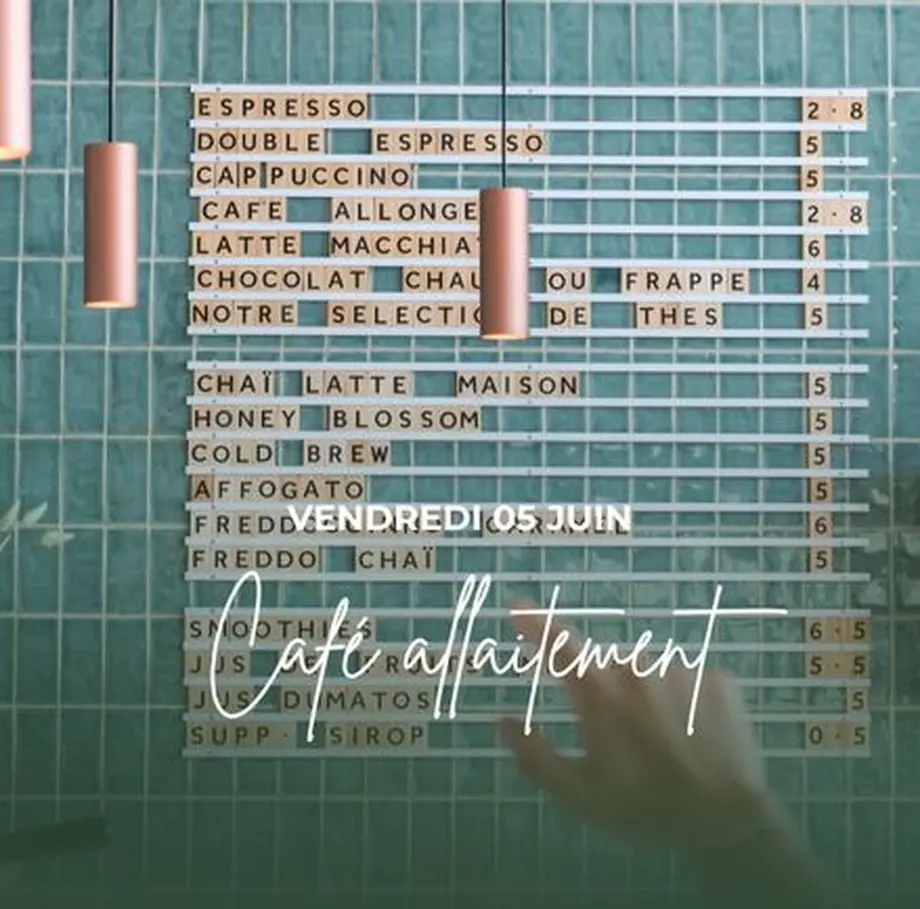 ESPRESSO 2·8
DOUBLE ESPRESSO 5
CAPPUCCINO 5
CAFE ALLONGE 2·8
LATTE 6
CHOCOLAT OU FRAPPE 4
NOTRE DE THES 5
CHAÏ LATTE MAISON 5
HONEY BLOSSOM 5
COLD BREW 5
AFFOGATO 5
VENDREDI 05 JUIN
FREDDO CARAMEL 6
FREDDO CHAÏ 5
Café allaitement
SMOOTHIES 6·5
JUS DE FRUITS 5·5
JUS DUMATOS 5
SUPP· SIROP 0·5